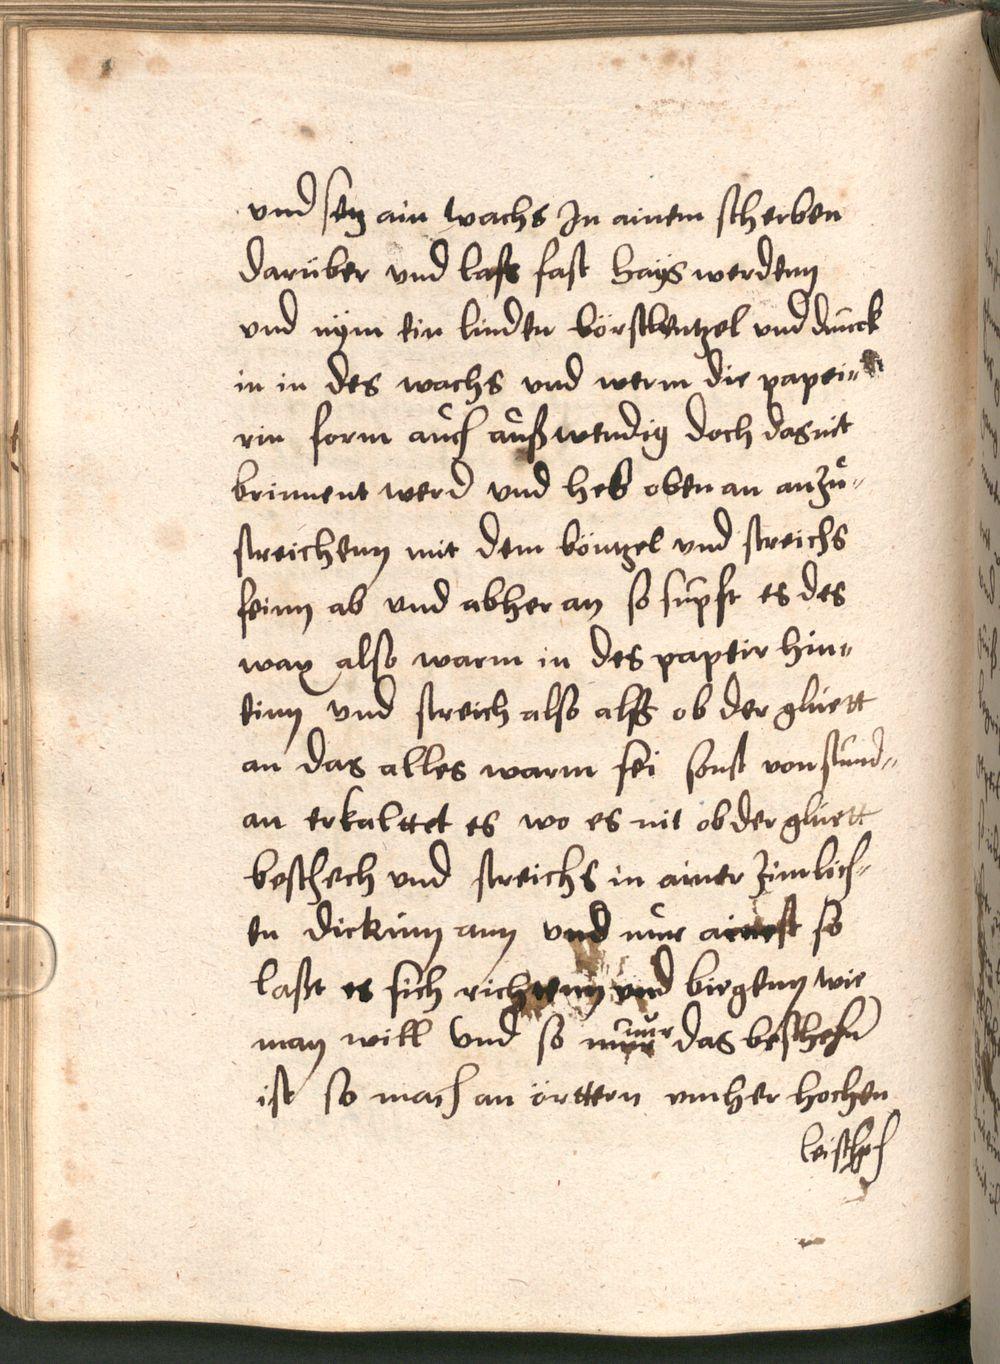 vnd setz ain wachs Jn ainem scherben
darüber vnd lass fast hays werdenn
vnd nÿm ein linden börstbentzel vnd dunck
in in des wachs vnd werm die papei-
rin form auch außwendig doch das nit
brinnent werd vnd heb oben an anzů-
streichenn mit dem böntzel vnd streichs
feinn ab vnd abher an so supft es des
wax also warm in des papeir hin-
einn vnd streich also alss ob der gluett
an das alles warm sei sonst von stund-
an erkalttet es wo es nit ob der gluett
beschech vnd streichs in ainer zimlich-
en dickinn ann vnd nur ainest so
laßt es sich richtenn vnd biegenn wie
man will vnd so nur das beschehn
ist so mach an örttern vmher hochen